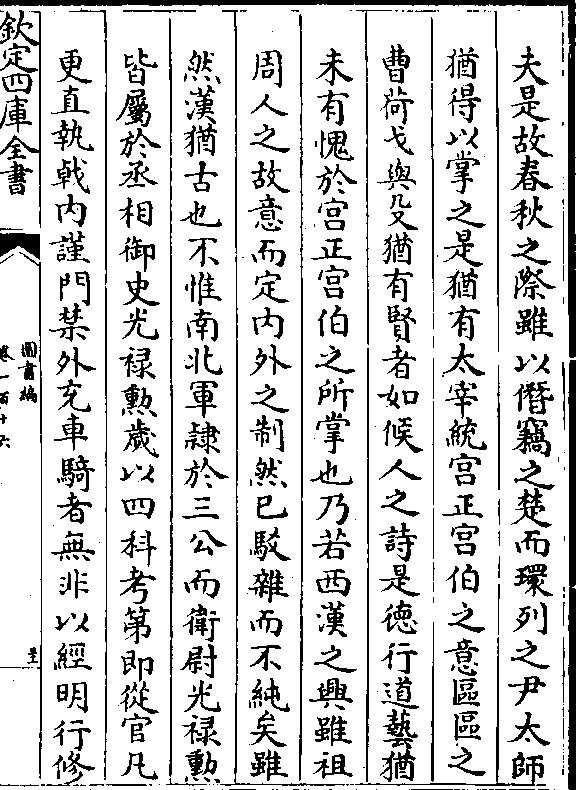 夫是故春秋之際雖以僭竊之楚而環列之尹太師
猶得以掌之是猶有太宰統宫正宫伯之意區區之
曹荷戈與殳猶有賢者如候人之詩是德行道藝猶
未有愧於宫正宫伯之所掌也乃若西漢之興雖祖
周人之故意而定内外之制然已駁雜而不純矣雖
然漢猶古也不惟南北軍隷於三公而衛尉光禄勲
皆屬於丞相御史光禄勲歲以四科考第即從官凡
更直執㦸内謹門禁外充車騎者無非以經明行修
欽定四庫全書
圖書編
卷一百十六